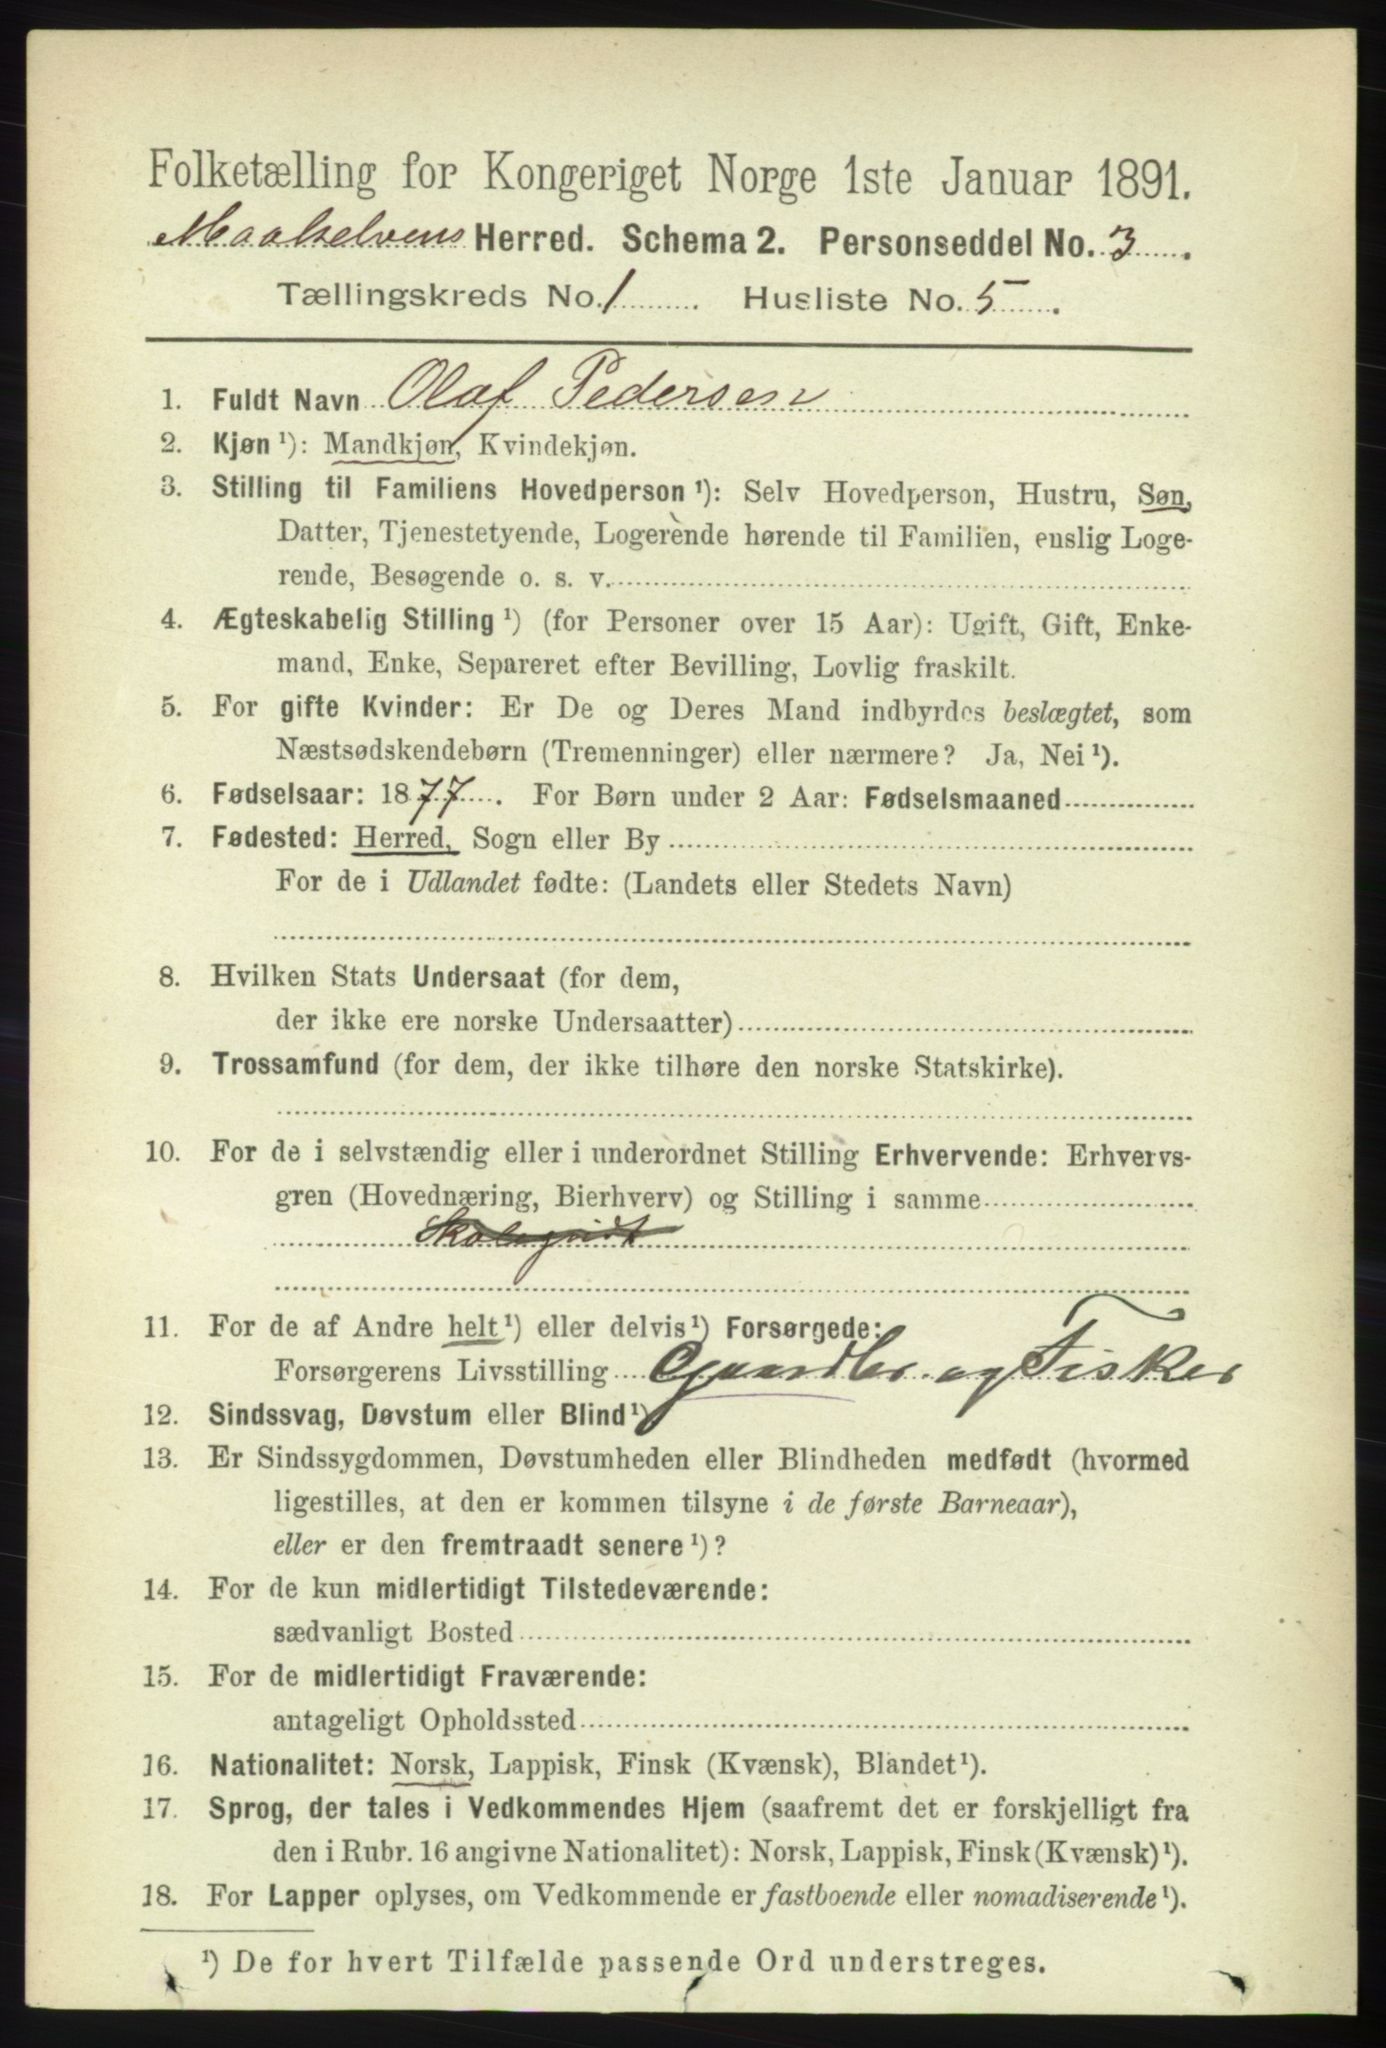 Folketælling for Kongeriget Norge 1ste Januar 1891.
Maalselvens Herred. Schema 2. Personseddel No. 3.
Tællingskreds No. 1. Husliste No. 5.
1. Fuldt Navn Olaf Pedersen
2. Kjøn ¹): Mandkjøn, Kvindekjøn.
3. Stilling til Familiens Hovedperson ¹): Selv Hovedperson, Hustru, Søn,
Datter, Tjenestetyende, Logerende hørende til Familien, enslig Loge-
rende, Besøgende o. s. v.
4. Ægteskabelig Stilling ¹) (for Personer over 15 Aar): Ugift, Gift, Enke-
mand, Enke, Separeret efter Bevilling, Lovlig fraskilt.
5. For gifte Kvinder: Er De og Deres Mand indbyrdes beslægtet, som
Næstsødskendebørn (Tremenninger) eller nærmere? Ja, Nei ¹).
6. Fødselsaar: 1877. For Børn under 2 Aar: Fødselsmaaned
7. Fødested: Herred, Sogn eller By
For de i Udlandet fødte: (Landets eller Stedets Navn)
8. Hvilken Stats Undersaat (for dem,
der ikke ere norske Undersaatter)
9. Trossamfund (for dem, der ikke tilhøre den norske Statskirke).
10. For de i selvstændig eller i underordnet Stilling Erhvervende: Erhvervs-
gren (Hovednæring, Bierhverv) og Stilling i samme
11. For de af Andre helt ¹) eller delvis ¹) Forsørgede:
Forsørgerens Livsstilling Gaardbr og Fisker
12. Sindssvag, Døvstum eller Blind ¹)
13. Er Sindssygdommen, Døvstumheden eller Blindheden medfødt (hvormed
ligestilles, at den er kommen tilsyne i de første Barneaar),
eller er den fremtraadt senere ¹)?
14. For de kun midlertidigt Tilstedeværende:
sædvanligt Bosted
15. For de midlertidigt Fraværende:
antageligt Opholdssted
16. Nationalitet: Norsk, Lappisk, Finsk (Kvænsk), Blandet ¹).
17. Sprog, der tales i Vedkommendes Hjem (saafremt det er forskjelligt fra
den i Rubr. 16 angivne Nationalitet): Norsk, Lappisk, Finsk (Kvænsk) ¹).
18. For Lapper oplyses, om Vedkommende er fastboende eller nomadiserende ¹).
¹) De for hvert Tilfælde passende Ord understreges.